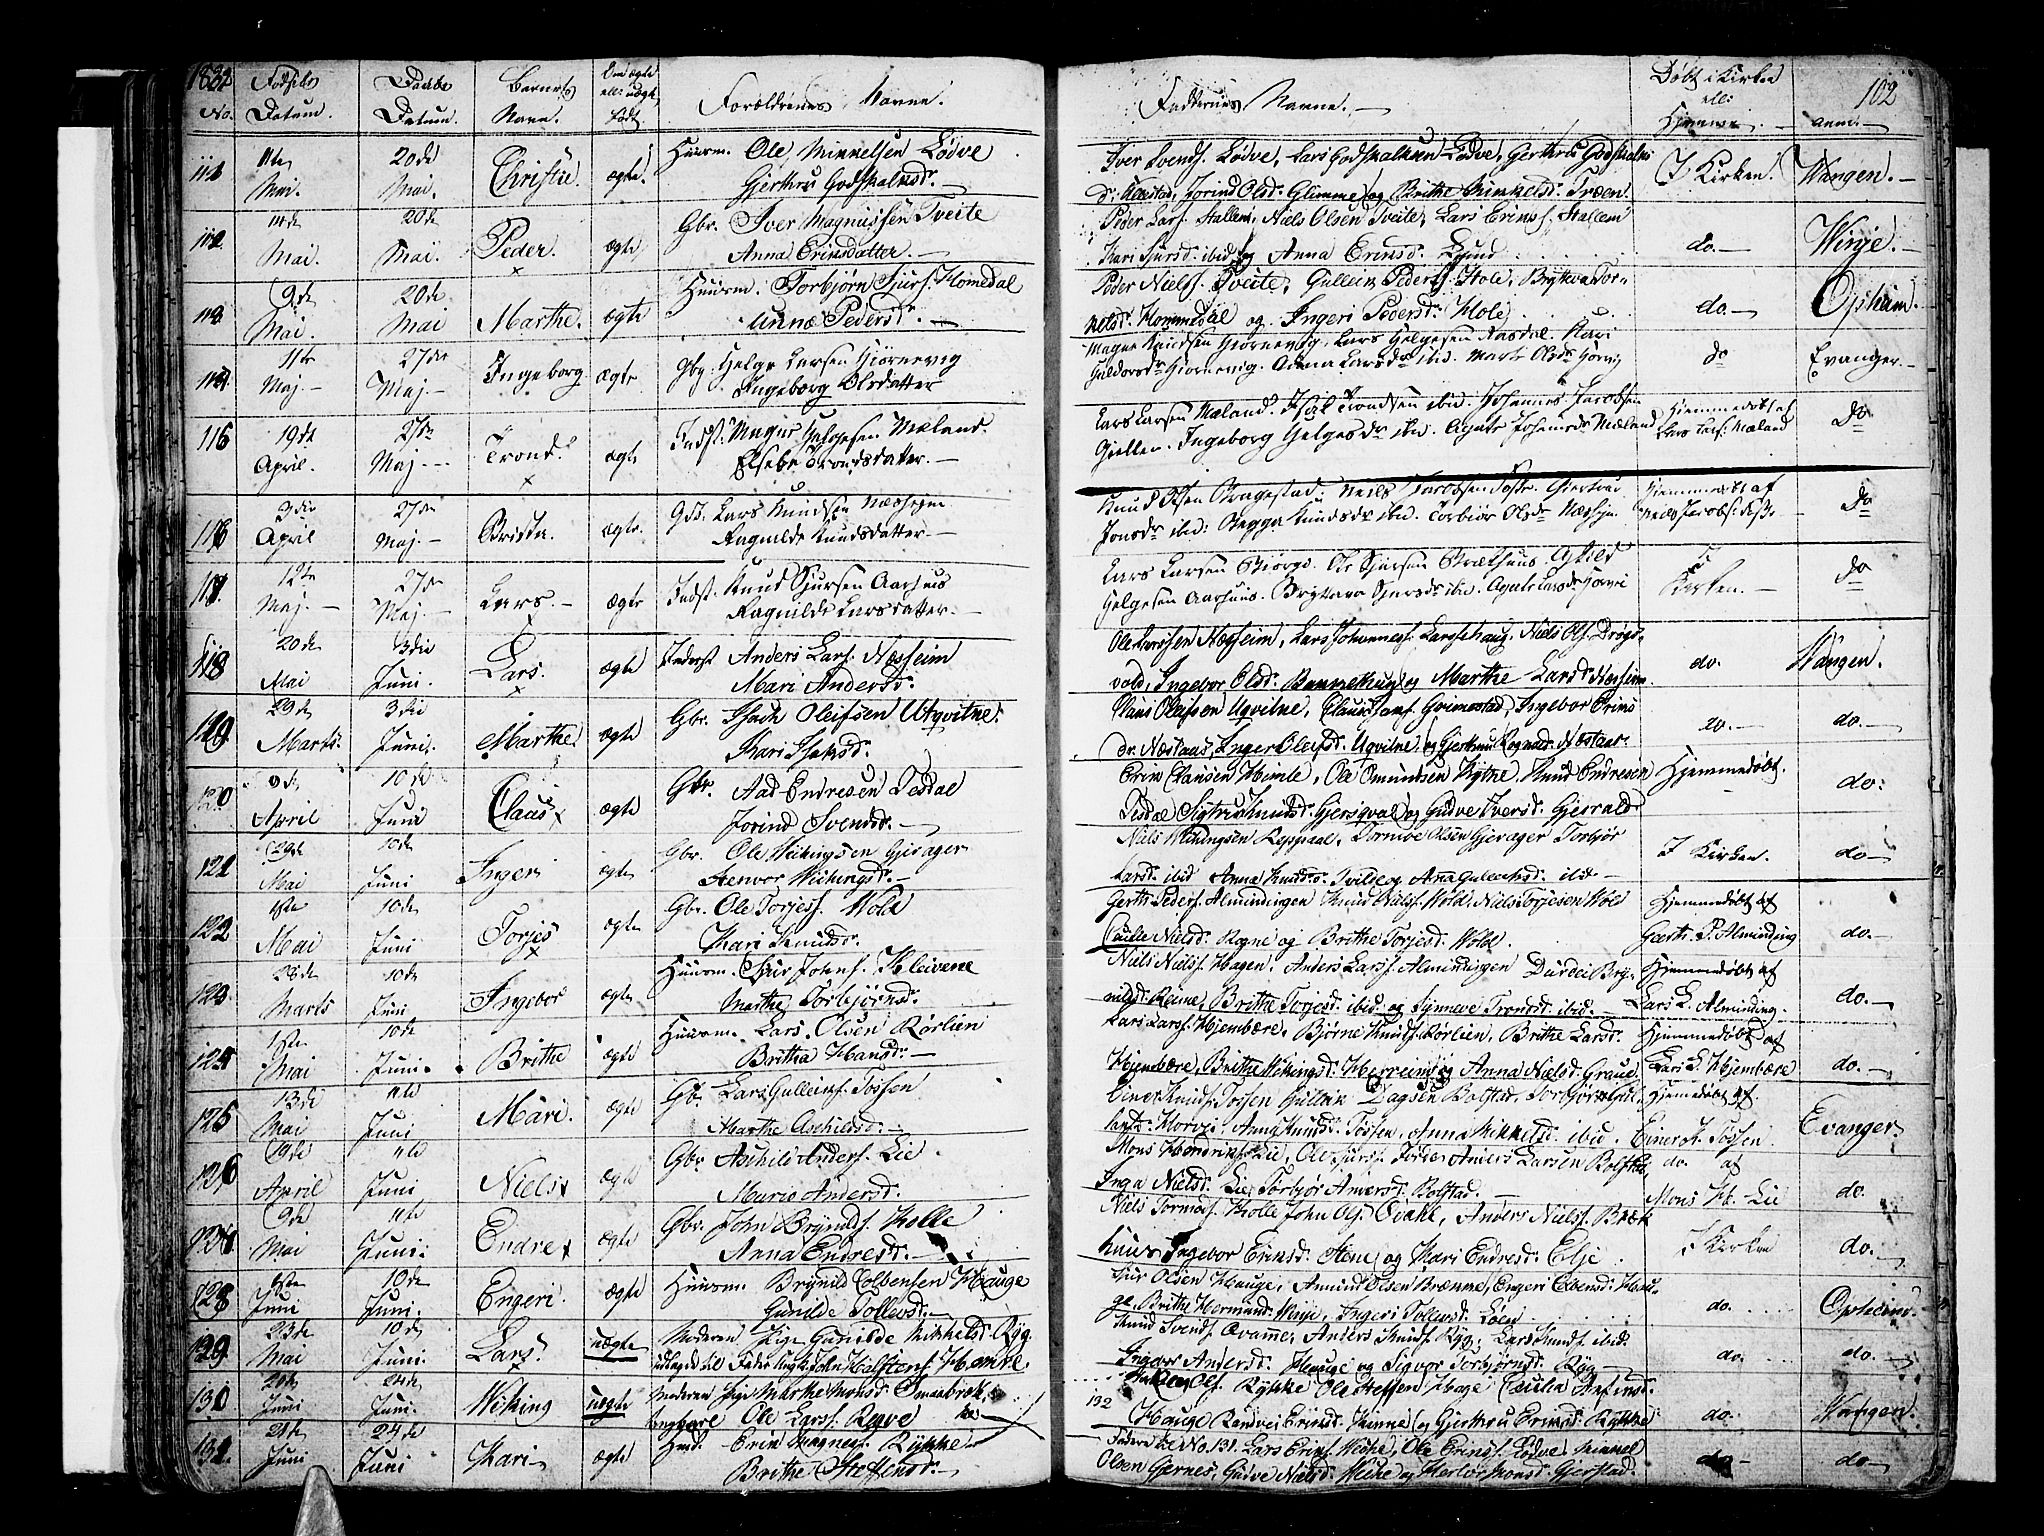 1832 Fødsels Daabs Barnets Om ægte Forældrenes Navne.
No. Datum. Datum. Navn. ell: uægte født.
Fadderens Navne. Døbt i Kirken ell: Hjemme anm. 102
111 11te Mai. 20de Mai. Christie. ægte. Huusm. Ole Mikkelsen Lødve
Gjertrud Godskalksdr.
Iver Svends. Lødve, Lars Godskalksen Lødve, Gjertrud Godskalks
dr. Jorind Olsdr. Glimme og Brithe Mikkelsdr. Træen. I Kirken. Wangen.
112 14de Mai. 20de Mai. Peder. ægte Gbr. Iver Magnussen Tveite
Anna Erinsdatter
Peder Lars. Stallem, Niels Olsen Tveite, Lars Erins. Stallem
Kari Sjursd. ibid og Anna Erinsd. Lund do. Winje.
113 9de Mai. 20de Mai Marthe. ægte Huusm. Torbjørn Sjurs. Homedal
Anna Pedersd.
Peder Niels. Tveite, Gullein Peders. Hole, Brytteva Tor-
kelsd. Hommedal og Ingeri Pedersd. Hole do. Opheim.
114 11te Maj. 27de Maj. Ingeborg ægte Gbr: Helge Larsen Hjørnevig
Ingeborg Olsdatter
Magne Knudsen Hjørnevig, Lars Helgesen Rasdal. Kari
Haldorsdr Hjørnevig. Anna Larsdr ibid. Marte Olsdr do Evanger.
116 19de April. 27de Maj. Trond. ægte Indst. Magne Helgesen Mæland.
Elsebe Trondsdatter.
Lars Larsen Mæland. Isak Trondsen ibid. Johannes Jacobsen
Gjellen. Ingeborg Helgesdr ibid. Agate Johansdr Mæland Hjemmedøbt af Lars Lars. Mæland do
116 3die April 27de Maj. Brita. ægte. Gbr. Lars Knudsen Næsheim
Ragnilde Knudsdatter.
Knud Olsen Bragestad: Niels Jacobsen Fosse. Giertrud
Jonsdr ibid: Brygga Knudsdr ibid. Torbiør Olsdr Næsheim. Hjemmedøbt af Niels Jacobs: Fosse do
117. 12te Maj. 27de Maj Lars. ægte Indst. Knud Sjursen Aarhuus
Ragnilde Larsdatter.
Lars Larsen Biørge. Ole Sjursen Bræthuus. Eskild
Helgesen Aarhuus. Brytteva Sjursdr ibid. Agate Larsdr Horvei I Kirken. do
118 20de Mai 3die Juni. Lars. ægte Inderst Anders Lars. Næsheim
Mari Andersd.
Ole Larssen Næsheim, Lars Johannes. Larssehaug, Niels Ols. Drøgs-
vold, Ingebor Olsd. og Marthe Larsd. Næsheim. do. Wangen.
119. 29de Marts. 3die Juni. Marthe. ægte Gbr. Isach Oleifsen Utqvitne.
Kari Isaksd.
Claus Olafsen Uqvitne, Claus Grimestad, Ingebor Erins
dr. Næstaas, Inger Oleifsd. Uqvitne og Gjertrud Rognaldsd. Næstaas. do. do.
120 April 10de Juni Claus ægte Gbr. Aad Endresen Tesdal
Jorind Svendsd.
Erin Clausen Himle, Ole Omundsen Kytne, Knud Endresen
Tesdal Sigtru Knudsd. Gjersqval og Gudve Iversd. Gjerald Hjemmedøbt. do:
121 29de Mai 10de Juni Inger ægte Gbr. Ole Wikingsen Gjerager
Stenvor Wikingsd.
Niels Wikingsen Reppaal, Tormoe Olsen Gjerager Torbjør
Larsd. ibid Anna Knudsd. Tvilde og Anna Gulleiksd. ibid. I Kirken. do
122 1ste Mai 10de Juni Torjes ægte Gbr. Ole Torjess. Wold
Kari Knudsd.
Gerth Peders. Almindingen Knud Niels. Wold. Niels Torjesen Wold
Cecilie Nielsd. Rogne og Brithe Torjesd. Wold. Hjemmedøbt af Gerth. P. Alminding do.
123. 28de Marts 10de Juni Ingebor ægte Huusm. Sjur Johns. Kleivene
Marthe Torbjørnsd.
Niels Niels. Hagen. Anders Lars. Almindingen Durdei Bry-
nildsd. Reime, Brithe Torjesd. ibid. og Synneve Trondsd. ibid. Hjemmedøbt af Lars L. Alminding. do.
124 1ste Mai 10de Juni. Brithe ægte Huusm. Lars Olsen Rørlien
Britha Hansd.
Lars Lars. Hjembære, Bjørne Knuds. Rørlien, Brithe Larsd.
Hjembære, Brithe Wikingsd. Herreim og Anna Nielsd. Graue Hjemmedøbt af Lars L. Hjembære do.
125 13de Mai 11te Juni Mari. ægte Gb. Lars Gulleins. Fossen
Marthe Aschildsd.
Einer Knuds. Fossen Gullein Dagsen Bolstad, Torbjør
Horvei, Anna Knudsd. Fossen, Anna Mikkelsd. ibid. Hjemmedøbt af. Einer K. Fossen. Evanger.
126 19de April 11te Juni Niels ægte Gbr Aschild Anders. Lie
Marie Andersd.
Mons Hendriks. Lie, Ole Sjurs. Anders Larsen Bolstad
Inga Nielsd. Lie, Torbjør Andersd. Bolstad. do. af Mons H. Lie do.
127. 9de Mai 11te Juni. Endre ægte Gbr. John Brynilds. Kolle
Anna Endresd.
Niels Tormos. Kolle John Ols. Evake, Anders Niels. Bræk
huus Ingebor Erinsd. Stene og Kari Endresd. Elje I Kirken do.
128 6te Juni 10de Juni. Engeri ægte Huusm. Brynild Colbensen Hauge
Gunilde Tollevsd.
Sjur Olsen Hauge, Amund Olsen Bremme, Engeri Colbensd. Hau-
ge, Brithe Hermundsd. Winje, Ingeri Tollevsd. Løen do. Opheim.
129 23de Mai 10de Juni. Lars. uægte Moderen Pige Gunilde Mikkelsd. Ryg
udlagd til Fader Ungk. John Halstens. Homve.
Knud Svends. Qvamme, Anders Knuds. Ryg, Lars Knuds. ibid.
Ingebor Andersd. Hauge og Sigvor Torbjørnsd. Ryg do. do.
130 20de Juni 24de Juni. Wiking uægte Moderen Pige Marthe Monsd. Smaabræk
Ungkarl Ole Larss. Rogve
Ols. Rykke Ole Steffen Hage Cecilia Anfinsd.
132 Hauge Randvei Erinsd. Hinne og Gjertru Erinsd. Rykke do. Wangen.
131. 21de Juni 24de Juni Kari ægte Hmd. Erin Magnes. Rykke
Brithe Steffensd.
Faddere til No. 131. Lars Erins. Wiche, Ole Erins. Lødve, Mikkel
Olsen Gjernes, Gudve Nielsd. Wiche og Herlør Monsd. Gjerstad. do do